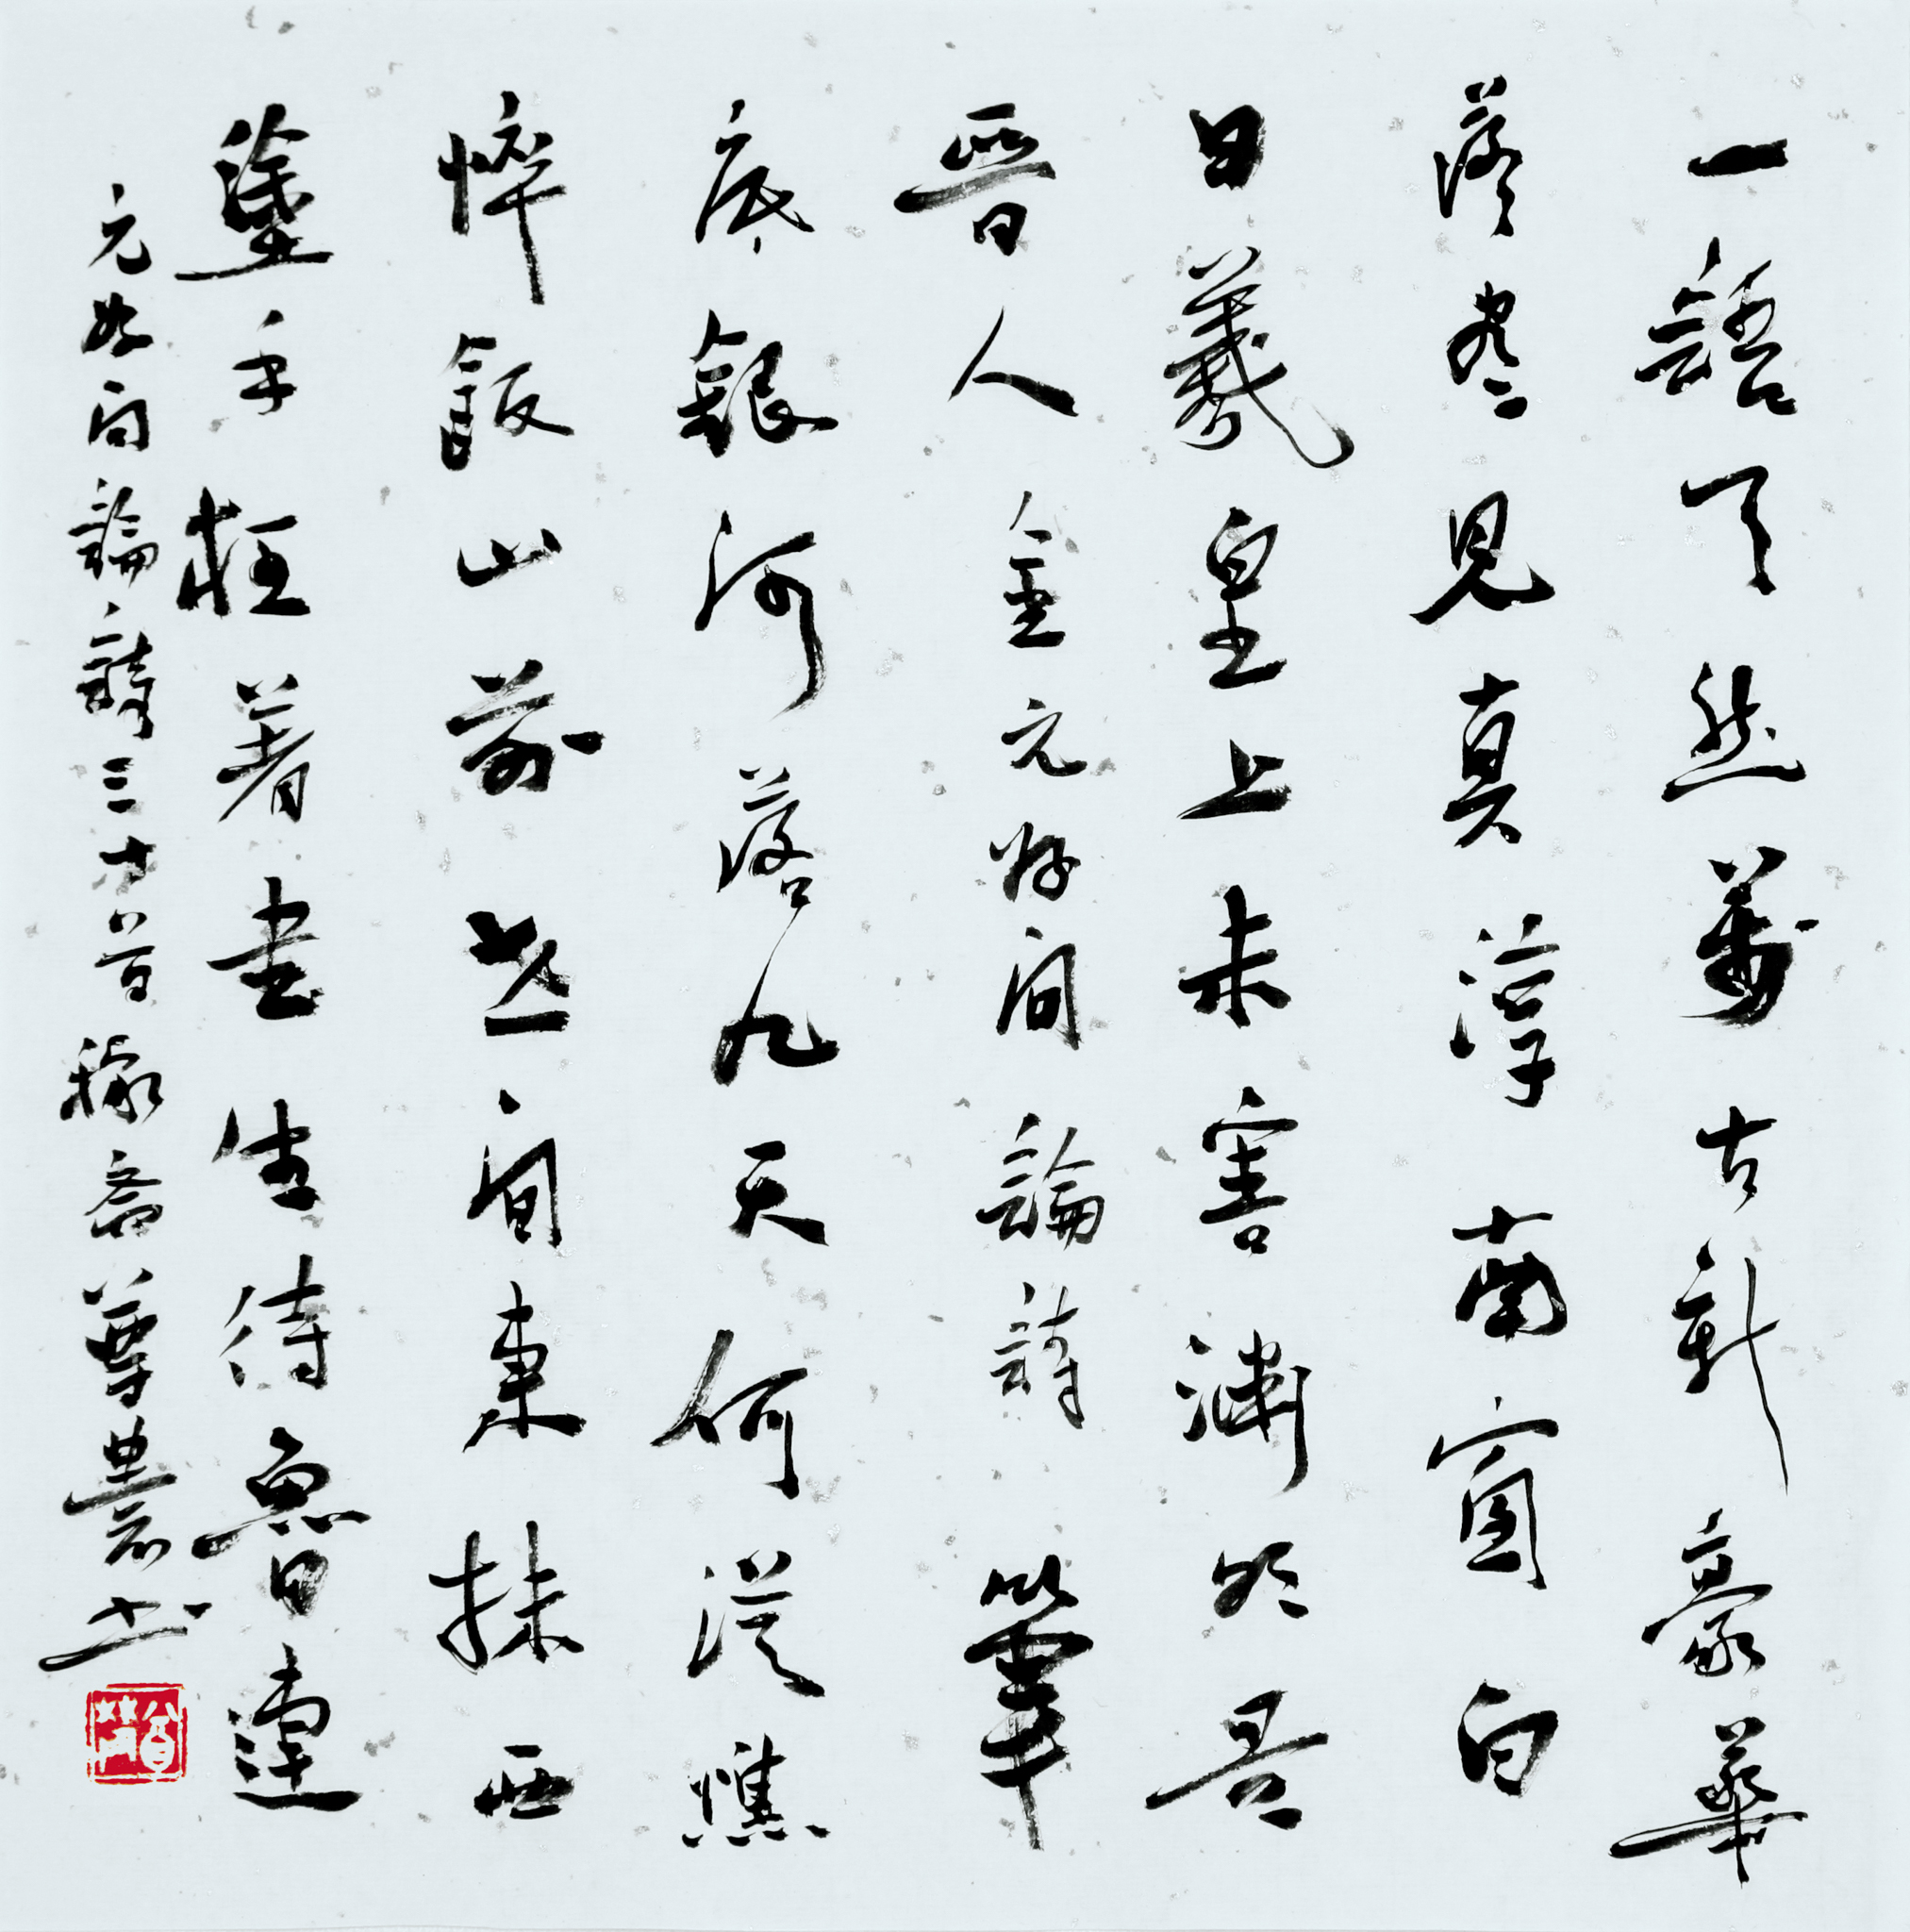 一語天然萬古新豪華
落盡見真淳南窗白
日羲皇上未害淵明是
晉人 金元好問論詩 筆
底銀河落九天何從憔
悴飯山前世間東抹西
塗手枉著書生待魯連
元好問論詩三十首稼齋尊農書